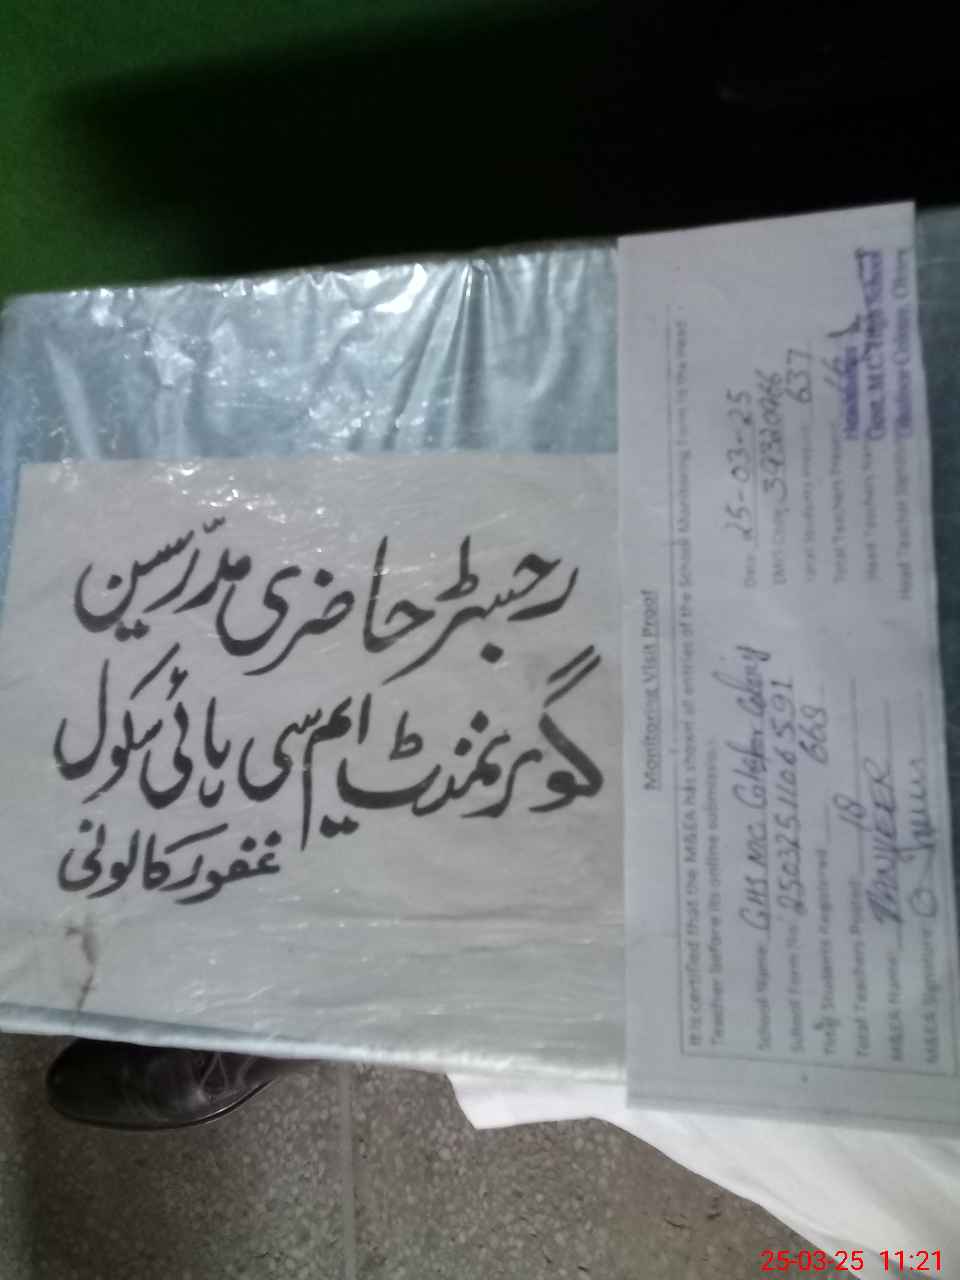 رجسٹر حاضری مدرسین
گورنمنٹ ایم سی ہائی سکول
غفور کالونی
Monitoring Visit Proof
It is certified that the M&EA has shown all entries of the School Monitoring Form to the Head
Teacher before its online submission.
School Name: GHS MC Colony
Date: 25-03-25
School Form No: 25032511066591
EMIS Code: 39320066
Total Students Registered 668
Total Students Present 637
Total Teachers Posted 18
Total Teachers Present 16
M&EA Name: TANVEER
Head Teacher Name
M&EA Signature:
Head Teacher Signature
Govt. M.C High School
25-03-25 11:21